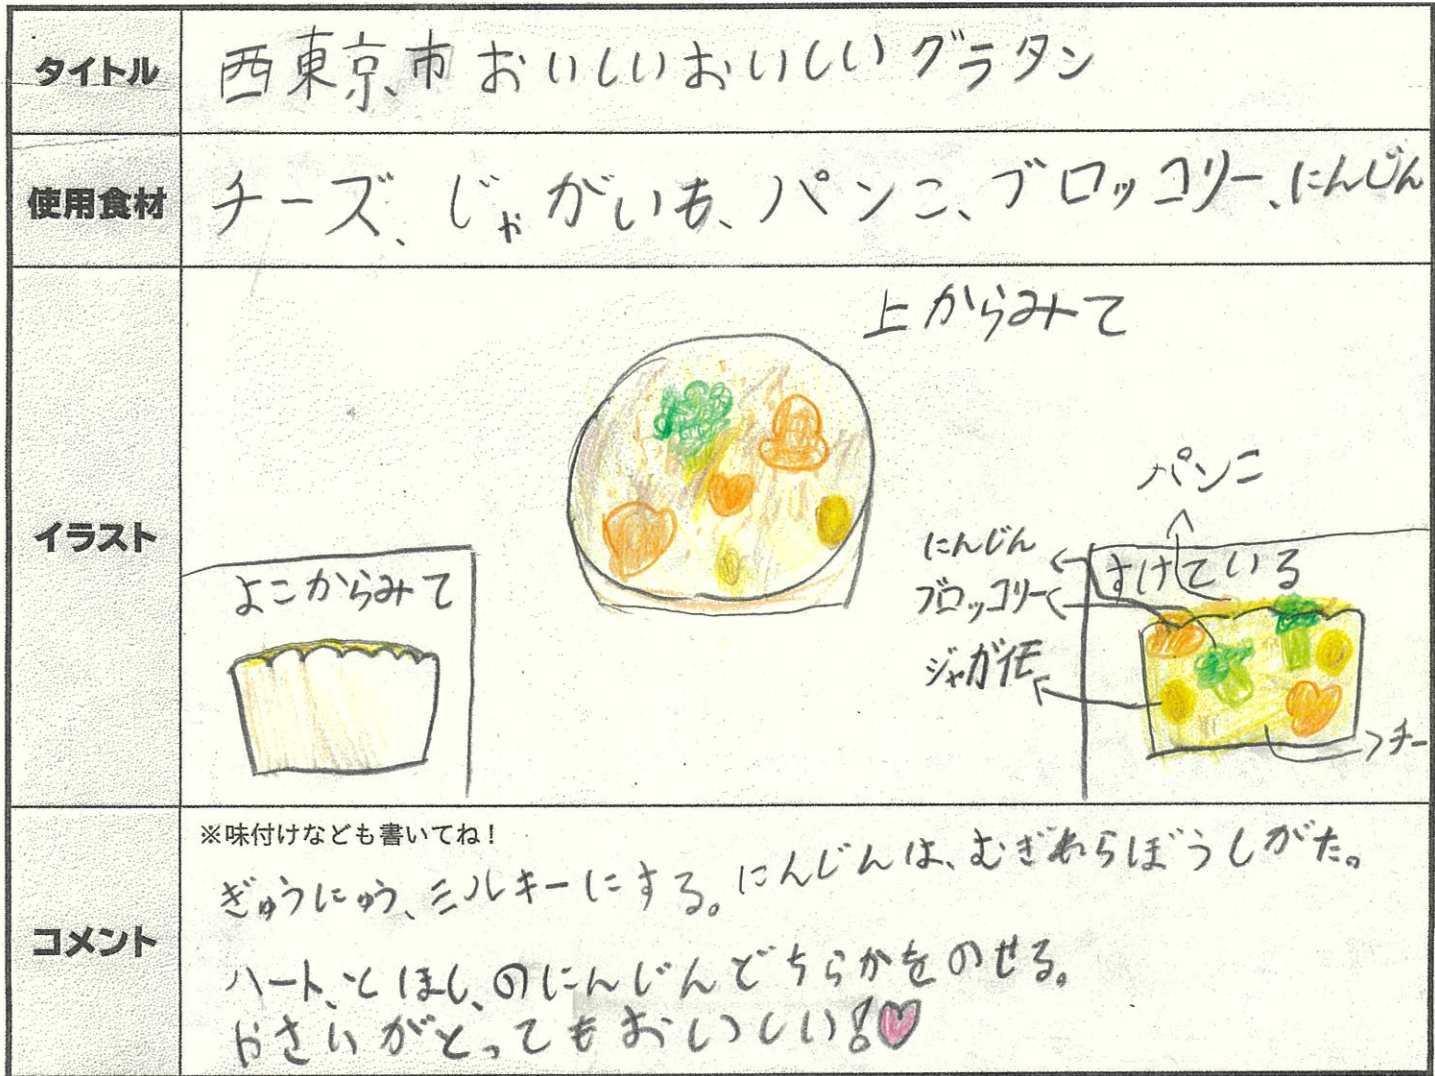 タイトル
西東京市おいしいおいしいグラタン
使用食材
チーズ、じゃがいも、パンこ、ブロッコリー、にんじん
イラスト
上からみて
パンこ
にんじん
ブロッコリー
ジャガイモ
すけている
チー
よこからみて
コメント
※味付けなども書いてね！
ぎゅうにゅう、ミルキーにする。にんじんは、むぎわらぼうしがた。
ハート、とほし、のにんじんどちらかをのせる。
やさいがとってもおいしい！